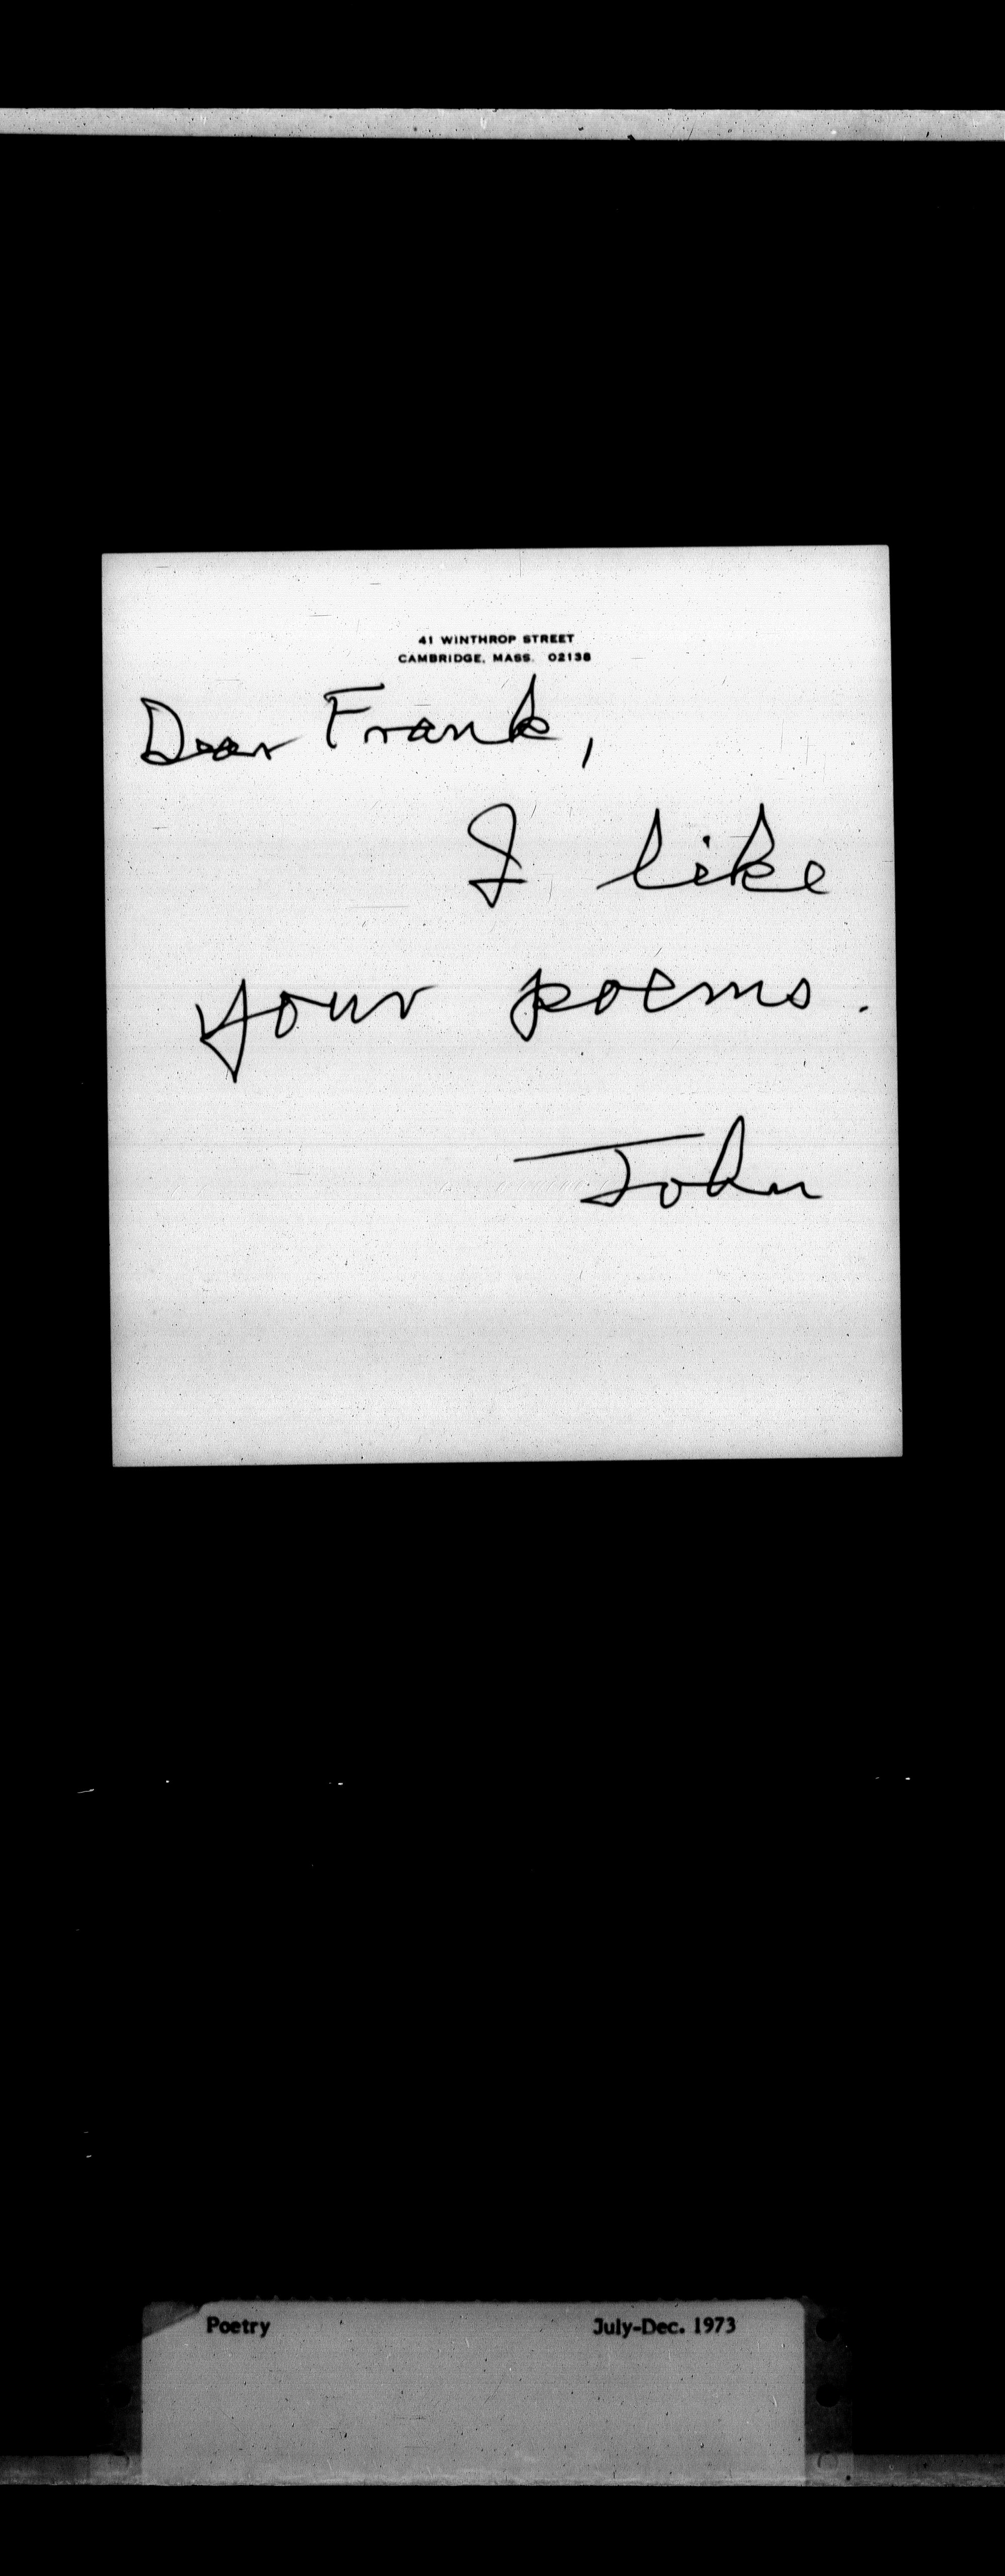 41 WINTHROP STREET
CAMBRIDGE, MASS. 02138
Dear Frank,
I like
your poems.
John
Poetry July-Dec. 1973